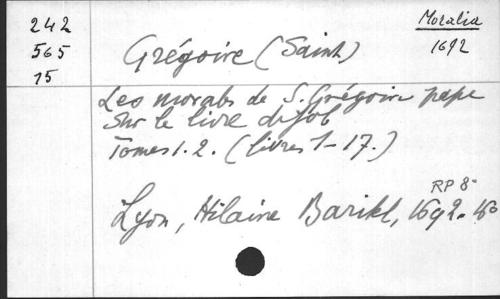 242
565
15
Moralia
1692
Grégoire (Saint)
Les morals de S. Grégoire pape
sur le livre de Job
Tomes 1. 2. (livres 1-17.)
RP 8°
Lyon, Hilaire Baritel, 1692.